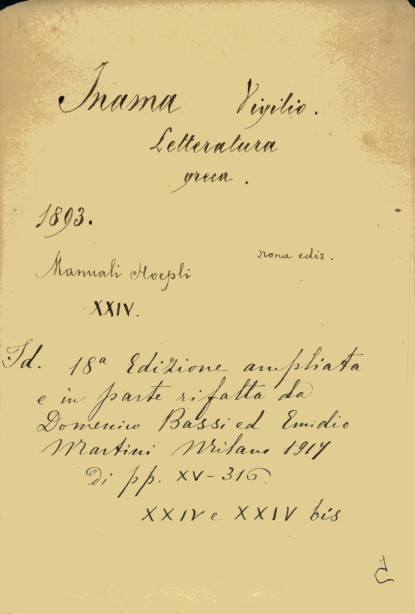 Inama Vigilio.
Letteratura
greca.
1893.
nona ediz.
Manuali Hoepli
XXIV.
Id. 18a Edizione ampliata
e in parte rifatta da
Domenico Bassi ed Emidio
Martini Milano 1917
di pp. XV-316.
XXIV e XXIV bis